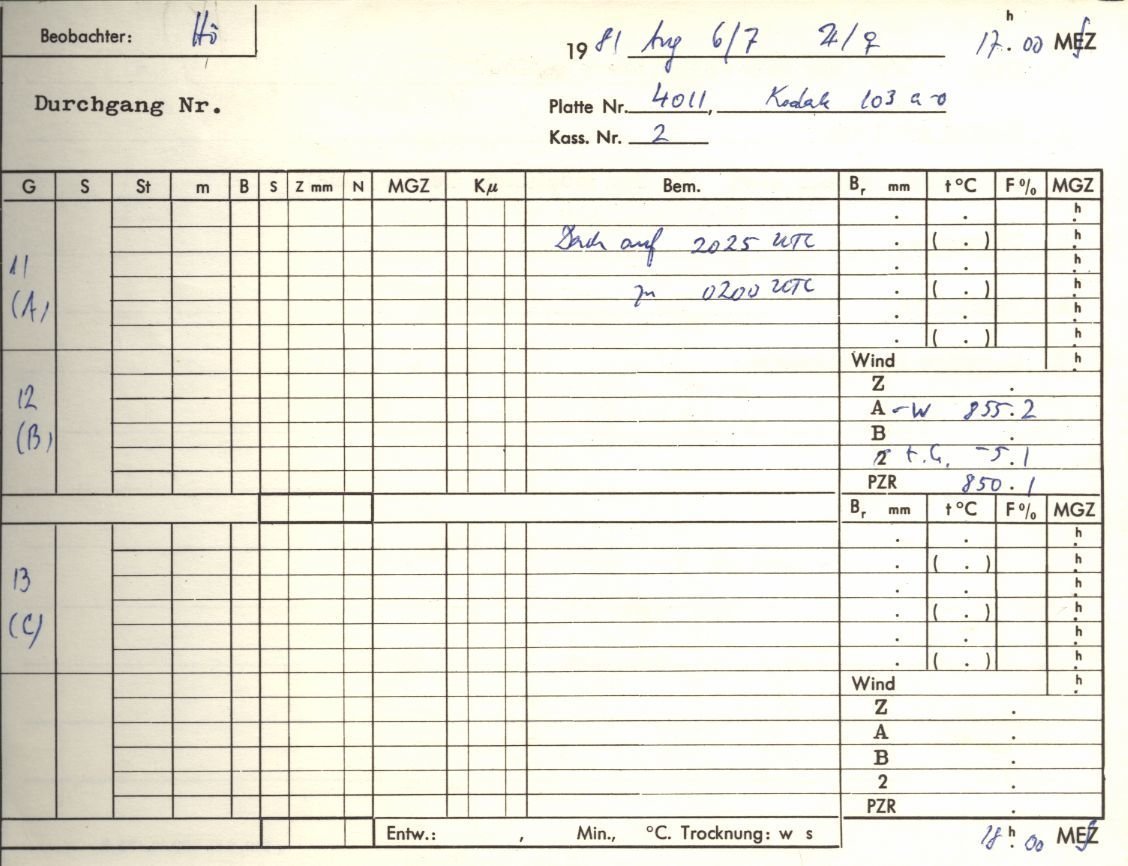 Beobachter: Hö
19 81 Aug 6/7 ♃/♀ 17h.00 MESZ
Durchgang Nr.
Platte Nr. 4011, Kodak 103 a-o
Kass. Nr. 2
G S St m B S Z mm N MGZ Kμ Bem. Br mm t°C F% MGZ
. . h
Dach auf 2025 UTC . ( . ) h
11 . . h
(A) zu 0200 UTC . ( . ) h
. . h
. ( . ) h
Wind h
Z .
12 A -W 855.2
(B) B .
2 t.G. -5.1
PZR 850.1
Br mm t°C F% MGZ
. . h
. ( . ) h
13 . . h
. ( . ) h
(C) . . h
. ( . ) h
Wind h
Z .
A .
B .
2 .
PZR .
Entw.: , Min., °C. Trocknung: w s
18h.00 MESZ